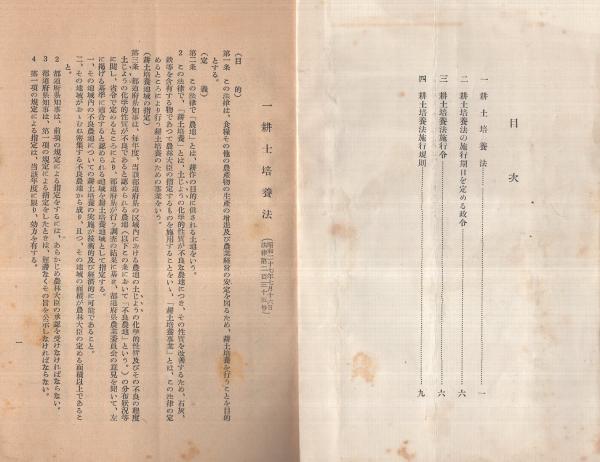 目次
一 耕土培養法……一
二 耕土培養法の施行期日を定める政令……六
三 耕土培養法施行令……六
四 耕土培養法施行規則……九
一 耕土培養法
(昭和二十七年七月十六日
法律第二百三十五号)
(目的)
第一条 この法律は、食糧その他の農産物の生産の増進及び農業経営の安定を図るため、耕土培養を行うことを目的
とする。
(定義)
第二条 この法律で「農地」とは、耕作の目的に供される土地をいう。
2 この法律で、「耕土培養」とは、土じようの化学的性質が不良な農地につき、その性質を改善するため、石灰、
鉄等を含有する物であつて農林大臣の指定するものを施用することをいい、「耕土培養事業」とは、この法律の定
めるところにより行う耕土培養のための事業をいう。
(耕土培養地域の指定)
第三条 都道府県知事は、毎年度、当該都道府県の区域内における農地の土じようの化学的性質及びその不良の程度
土じようの化学的性質が不良であると認められる農地(以下この条において「不良農地」という。)の分布状況等
に関し、省令で定めるところにより、都道府県が行う調査の結果に基き、都道府県農業委員会の意見を聞いて、左
に掲げる基準に適合すると認められる地域を耕土培養地域として指定する。
一、その地域内の不良農地についての耕土培養の実施が技術的及び経済的に可能であること。
二、その地域がおゝむね密集する不良農地から成り、且つ、その地域の面積が農林大臣の定める面積以上であるこ
と。
2 都道府県知事は、前項の規定による指定をするには、あらかじめ農林大臣の承認を受けなければならない。
3 都道府県知事は、第一項の規定による指定をしたときは、遅滞なくその旨を公示しなければならない。
4 第一項の規定による指定は、当該年度に限り、効力を有する。
一